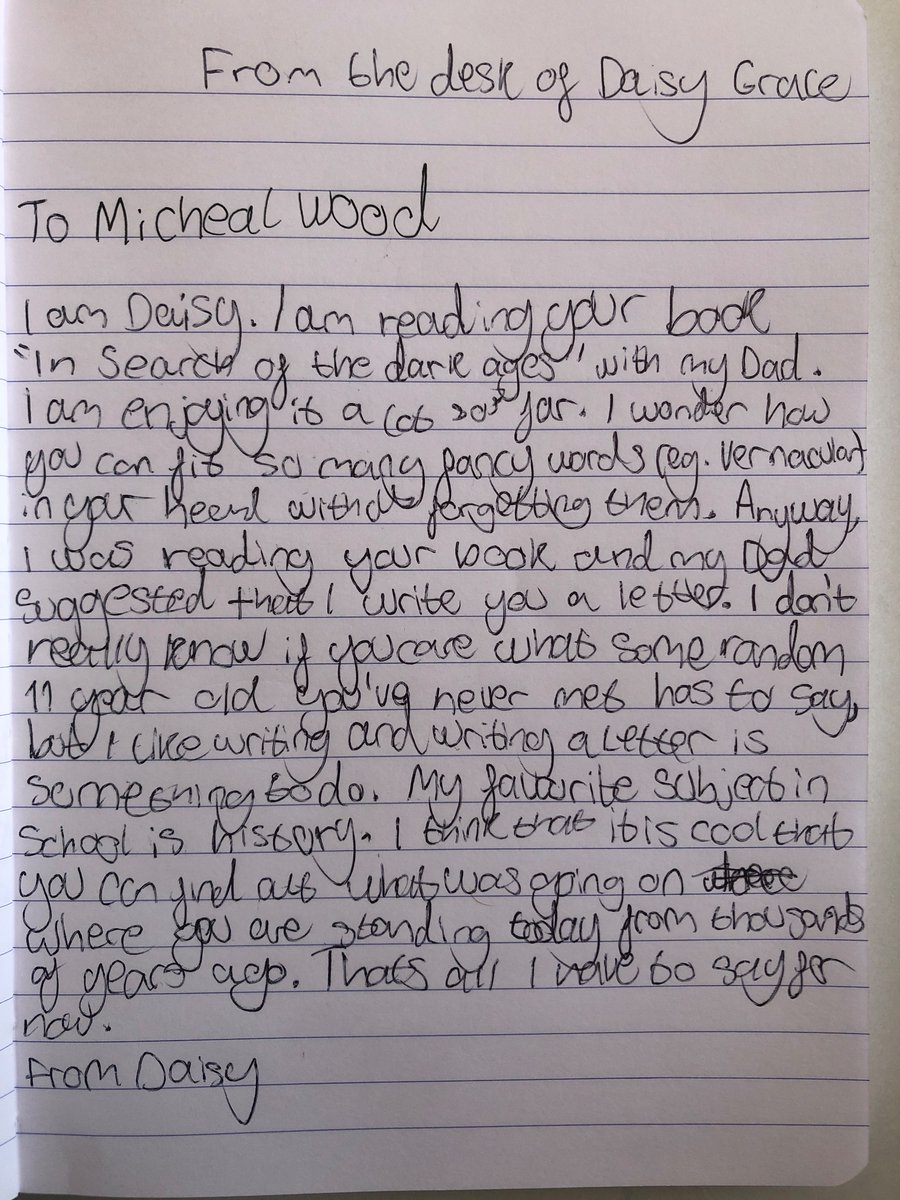 From the desk of Daisy Grace
To Micheal Wood
I am Daisy. I am reading your book
"In Search of the dark ages" with my Dad.
I am enjoying it a lot so far. I wonder how
you can fit so many fancy words (eg. vernacular)
in your head without forgetting them. Anyway,
I was reading your book and my Dad
suggested that I write you a letter. I don't
really know if you care what some random
11 year old you've never met has to say,
but I like writing and writing a letter is
something to do. My favourite subject in
School is history. I think that it is cool that
you can find out what was going on
where you are standing today from thousands
of years ago. Thats all I have to say for
now.
From Daisy